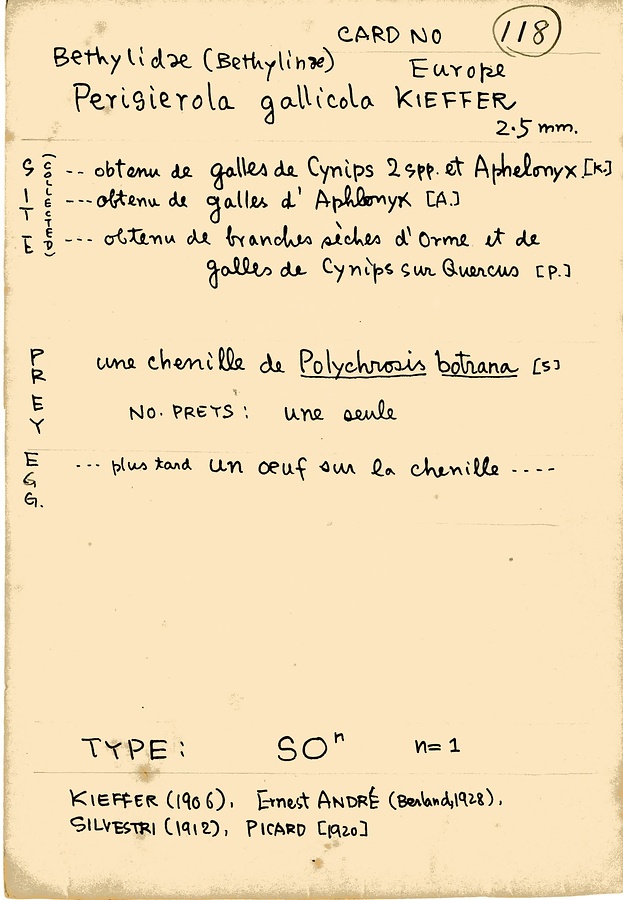 CARD NO 118
Bethylidae (Bethylinae) Europe
Perisierola gallicola KIEFFER
2.5 mm.
SITE (COLLECTED) -- obtenu de galles de Cynips 2 spp. et Aphelonyx [K.]
--- obtenu de galles d' Aphlonyx [A.]
--- obtenu de branches sèches d'Orme et de
galles de Cynips sur Quercus [P.]
PREY une chenille de Polychrosis botrana [S]
NO. PREYS : une seule
EGG. --- plus tard un œuf sur la chenille ----
TYPE : SOⁿ n=1
KIEFFER (1906), Ernest ANDRÉ (Berland, 1928),
SILVESTRI (1912), PICARD [1920]